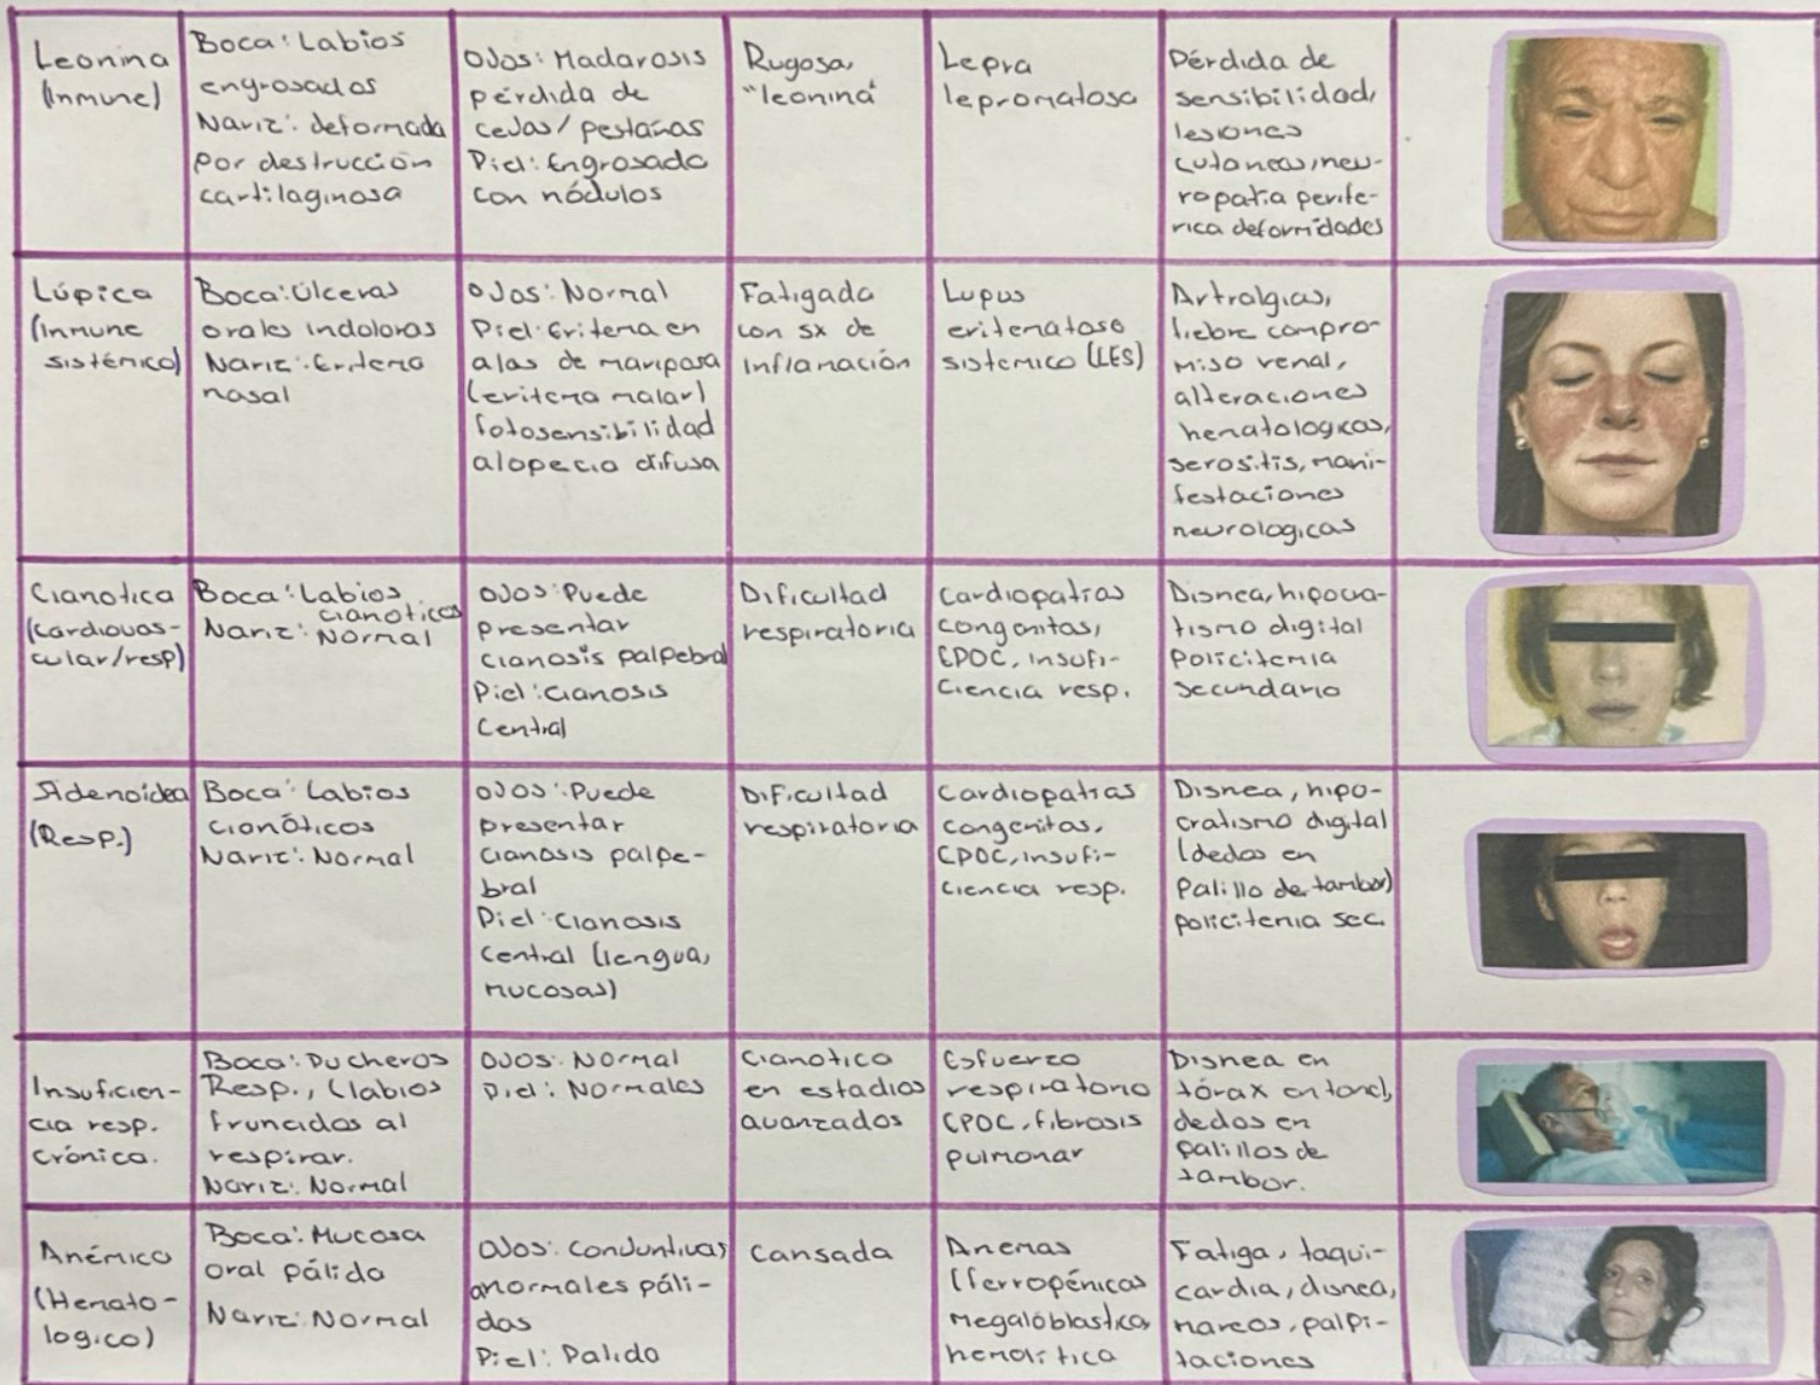 Leonina
(Inmune)
Boca: Labios
engrosados
Nariz: deformada
por destrucción
cartilaginosa
Ojos: Madarosis
pérdida de
cejas/pestañas
Piel: Engrosada
con nódulos
Rugosa,
"leonina"
Lepra
lepromatosa
Pérdida de
sensibilidad,
lesiones
cutaneas, neu-
ropatia perife-
rica deformidades
Lúpica
(Inmune
sistémico)
Boca: Úlceras
orales indoloras
Nariz: Eritema
nasal
Ojos: Normal
Piel: Eritema en
alas de mariposa
(eritema malar)
fotosensibilidad
alopecia difusa
Fatigada
con sx de
Inflamación
Lupus
eritematoso
sistemico (LES)
Artralgias,
fiebre compro-
miso renal,
alteraciones
hematologicas,
serositis, mani-
festaciones
neurologicas
Cianotica
(Cardiovas-
cular/resp)
Boca: Labios
cianoticos
Nariz: Normal
Ojos: Puede
presentar
cianosis palpebral
Piel: Cianosis
Central
Dificultad
respiratoria
Cardiopatias
congenitas,
EPOC, insufi-
ciencia resp.
Disnea, hipocra-
tismo digital
Policitemia
secundario
Adenoidea
(Resp.)
Boca: Labios
cianóticos
Nariz: Normal
Ojos: Puede
presentar
cianosis palpe-
bral
Piel: Cianosis
Central (lengua,
mucosas)
Dificultad
respiratoria
Cardiopatias
Congenitas,
EPOC, insufi-
ciencia resp.
Disnea, hipo-
cratismo digital
(dedos en
Palillo de tambor)
policitemia sec.
Insuficien-
cia resp.
crónica.
Boca: Pucheros
Resp., (labios
fruncidos al
respirar.
Nariz: Normal
Ojos: Normal
Piel: Normales
Cianotico
en estadios
avanzados
Esfuerzo
respiratorio
EPOC, fibrosis
pulmonar
Disnea en
tórax en tonel,
dedos en
palillos de
tambor.
Anémico
(Hemato-
logico)
Boca: Mucosa
oral pálida
Nariz: Normal
Ojos: Conjuntivas
anormales páli-
das
Piel: Palida
Cansada
Anemas
(ferropénicas
megaloblastica,
hemolitica
Fatiga, taqui-
cardia, disnea,
mareos, palpi-
taciones